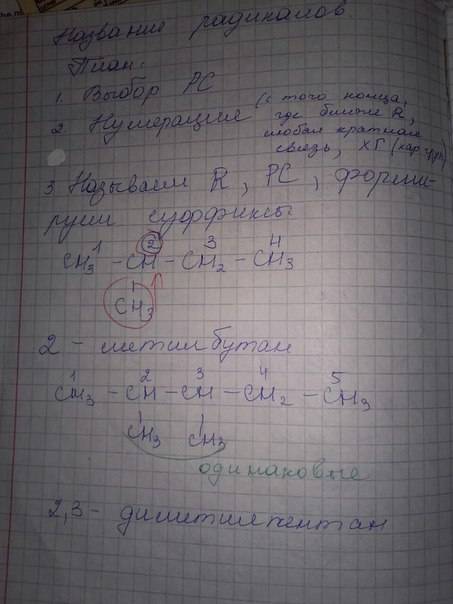 Название радикалов.
План:
1. Выбор РС
2. Нумерация (с того конца,
где ближе R,
любая кратная
связь, ХГ
3. Называем R, РС, форми-
руем суффиксы
1 2 3 4
CH3 - CH - CH2 - CH3
CH3
2 - метилбутан
1 2 3 4 5
CH3 - CH - CH - CH2 - CH3
CH3 CH3
одинаковые
2,3 - диметилпентан